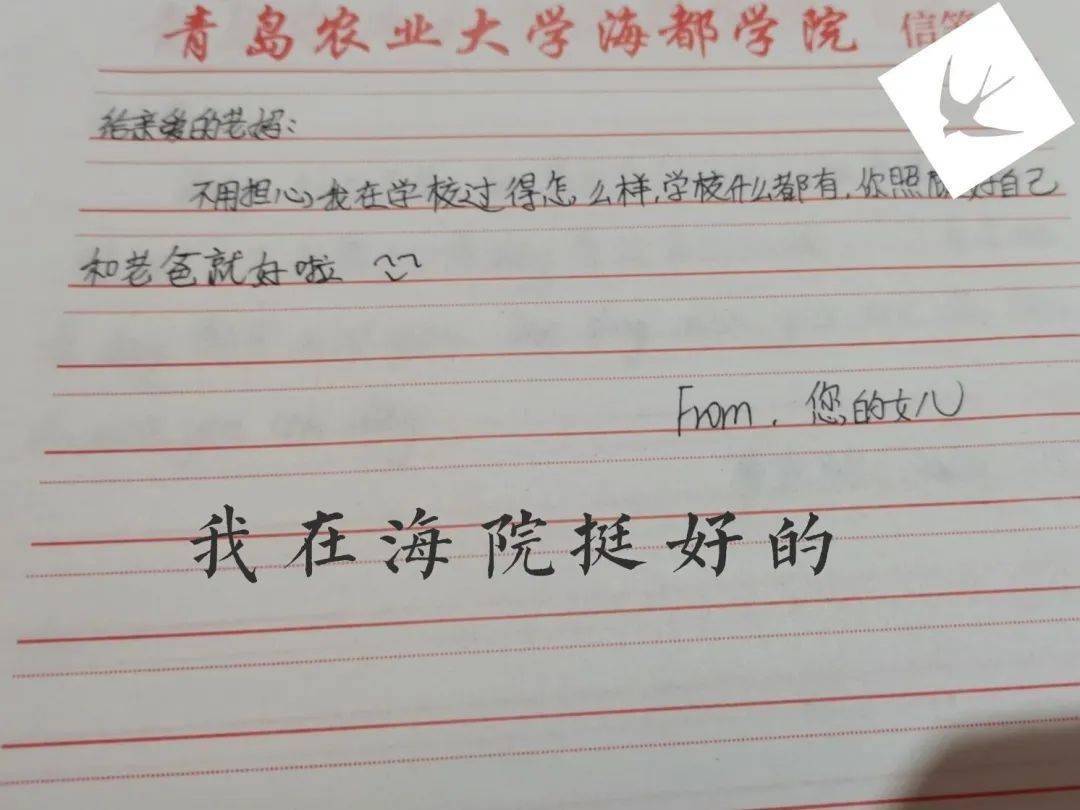 青岛农业大学海都学院 信笺
给亲爱的老妈:
不用担心我在学校过得怎么样,学校什么都有,你照顾好自己
和老爸就好啦
From. 您的女儿
我在海院挺好的